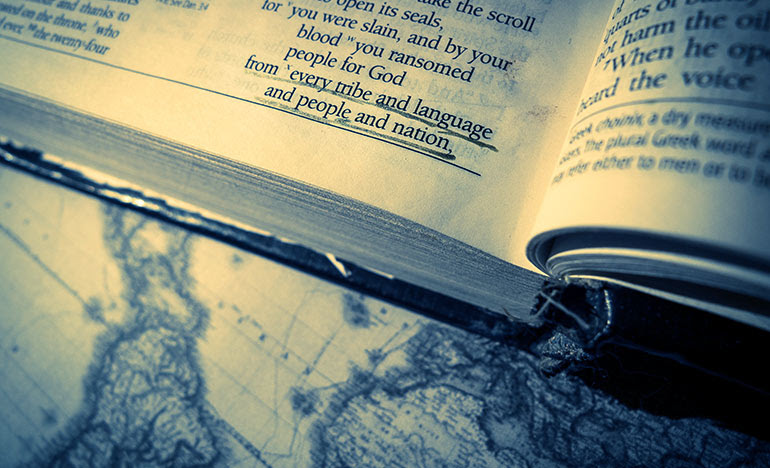 and thanks to
on the throne, ʰwho
ever, ⁱthe twenty-four
take the scroll
to open its seals,
for ᵛyou were slain, and by your
blood ʷyou ransomed
people for God
from ˣevery tribe and language
and people and nation,
quarts of
not harm the oil
⁷When he
heard the voice
Greek choinix, a dry measure
the plural Greek word
refer either to men or to